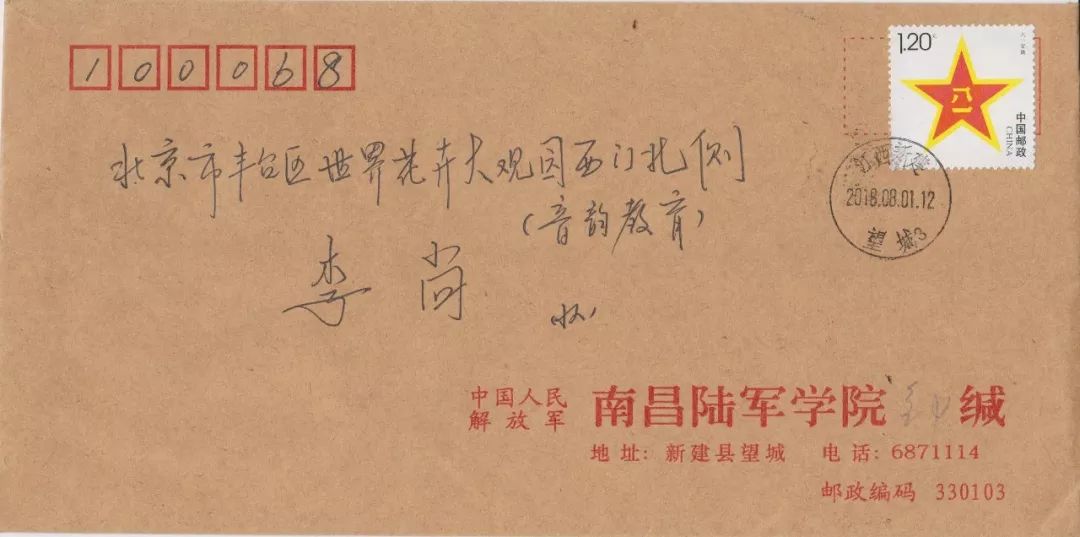 100068
1.20元
八一军旗
中国邮政
CHINA
江西新建
2018.08.01.12
望城3
北京市丰台区世界花卉大观园西门北侧
(音韵教育)
李尚 收
中国人民
解放军
南昌陆军学院 缄
地址:新建县望城 电话:6871114
邮政编码 330103